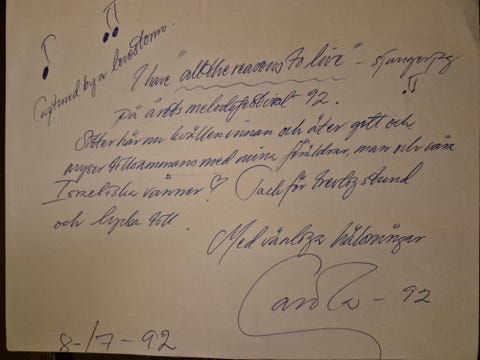 Captured by a lovestorm...
I have "all the reasons to live" - sjunger jag
på årets melodifestival 92.
Sitter här nu kvällen innan och äter gott och
myser tillsammans med mina föräldrar, man och våra
Israeliska vänner! Tack för trevlig stund
och lycka till.
Med vänliga hälsningar
Carola - 92
8-/7-92